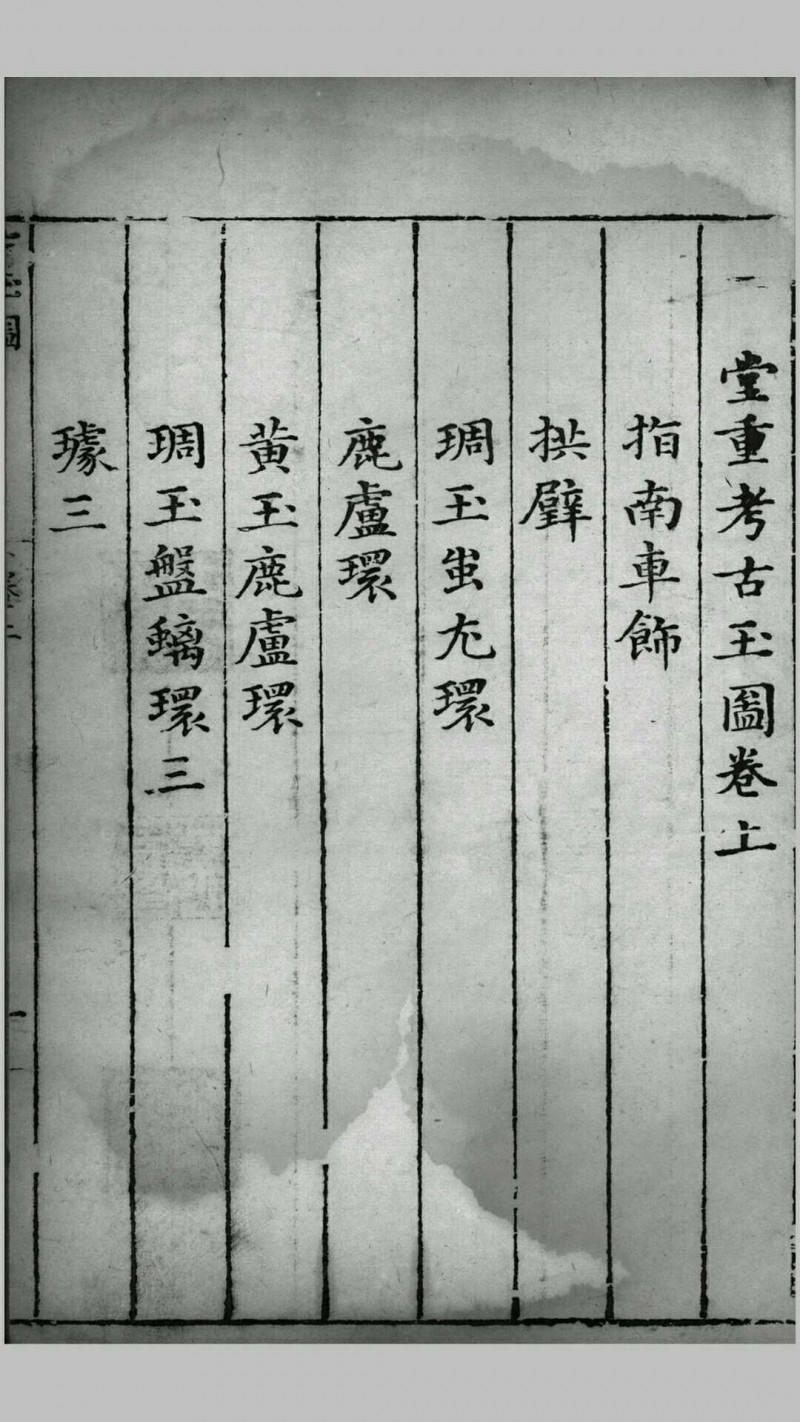 堂重考古玉圖卷上
指南車飾
拱璧
琱玉蚩尤環
鹿盧環
黃玉鹿盧環
琱玉盤螭環三
璩三